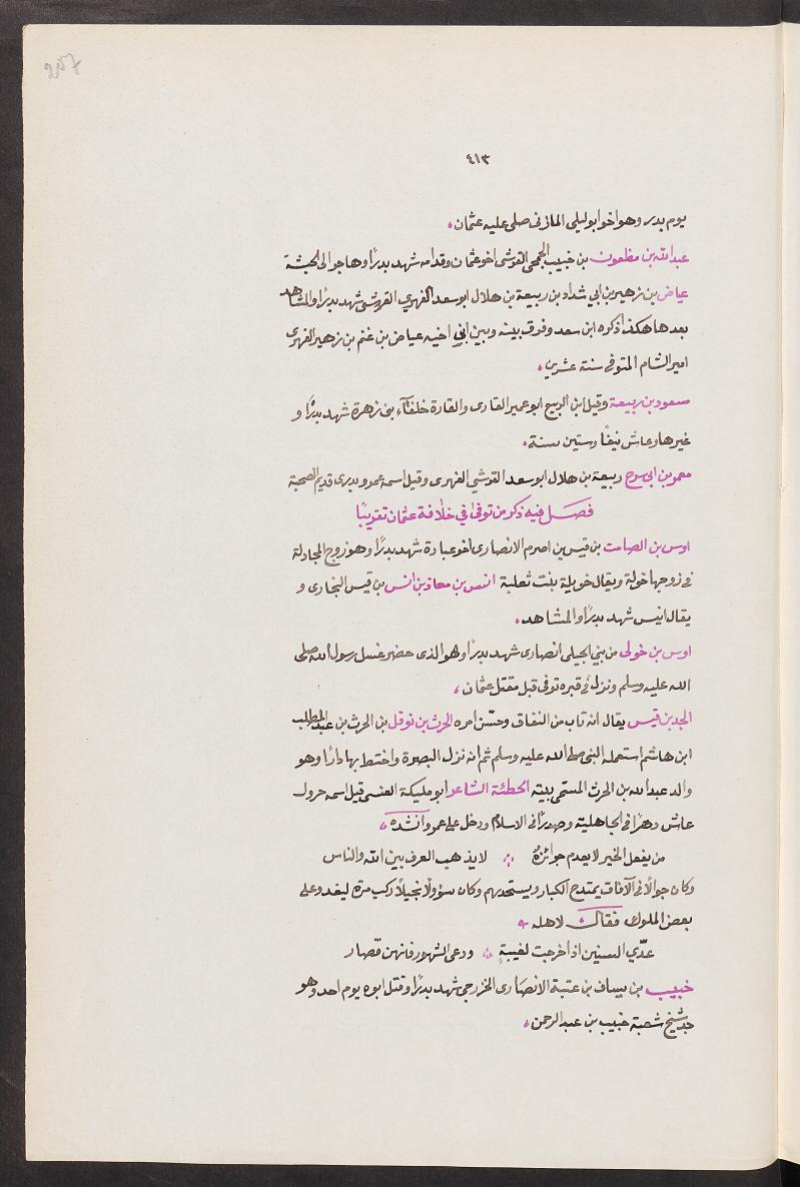 257
٤١٣
يوم بدر وهو اخو ابو ليلى المازنى صلى عليه عثمان
عبد الله بن مظعون بن خبيب الجمحى القرشى اخو عثمان وقدامه شهد بدرًا وهاجر الى الحبشة
عياض بن زهير بن ابي شداد بن ربيعة بن هلال ابو سعد الفهري القرشى شهد بدرًا والمشاهد
بعدها هكذا ذكره ابن سعد وفرق بينه وبين ابن اخيه عياض بن غنم بن زهير الفهرى
امير الشام المتوفى سنة عشرين
مسعود بن ربيعة وقيل ابن الربيع ابو عمير القارى والقارة حلفآء بنى زهرة شهد بدرًا و
غيرها وعاش نيفًا وستين سنة
معمر بن ابى سرح ربيعة بن هلال ابو سعد القرشي الفهرى وقيل اسمه عمرو بدرى قديم الصحبة
فصل فيه ذكر من توفى في خلافة عثمان تقريبًا
اوس بن الصامت بن قيس بن اصرم الانصارى اخو عبادة شهد بدرًا وهو زوج المجادلة
فى زوجها خولة ويقال خويلة بنت ثعلبة انس بن معاذ بن انس بن قيس النجارى و
يقال انيس شهد بدرًا والمشاهد
اوس بن خولى من بني الحبلى انصارى شهد بدرًا وهو الذى حضر غسل رسول الله صلى
الله عليه وسلم ونزل فى قبره توفى قبل مقتل عثمان
الجد بن قيس يقال انه تاب من النفاق وحسن امره الحرث بن نوفل بن الحرث بن عبد المطلب
ابن هاشم استعمله النبى صلى الله عليه وسلم ثم انه نزل البصرة واختط بها دارًا وهو
والد عبد الله بن الحرث المسمى ببته الحطئة الشاعر ابو مليكة العبسى قيل اسمه جرول
عاش دهرًا فى الجاهلية وصدرًا فى الاسلام ودخل على عمر وانشده
من يفعل الخير لا يعدم جوائزه لا يذهب العرف بين الله والناس
وكان جوالًا فى الآفاق يمتدح الكبار ويستجديهم وكان سؤولًا بخيلاً ركب مرة ليفد وعلى
بعض الملوك فقال لاهله
عدّي السنين اذا خرجت لغيبةٍ ودعى الشهور فانهن قصار
خبيب بن يساف بن عتبة الانصارى الخزرجى شهد بدرًا وقتل ابوه يوم احد وهو
جد شيخ شعبة خبيب بن عبد الرحمن